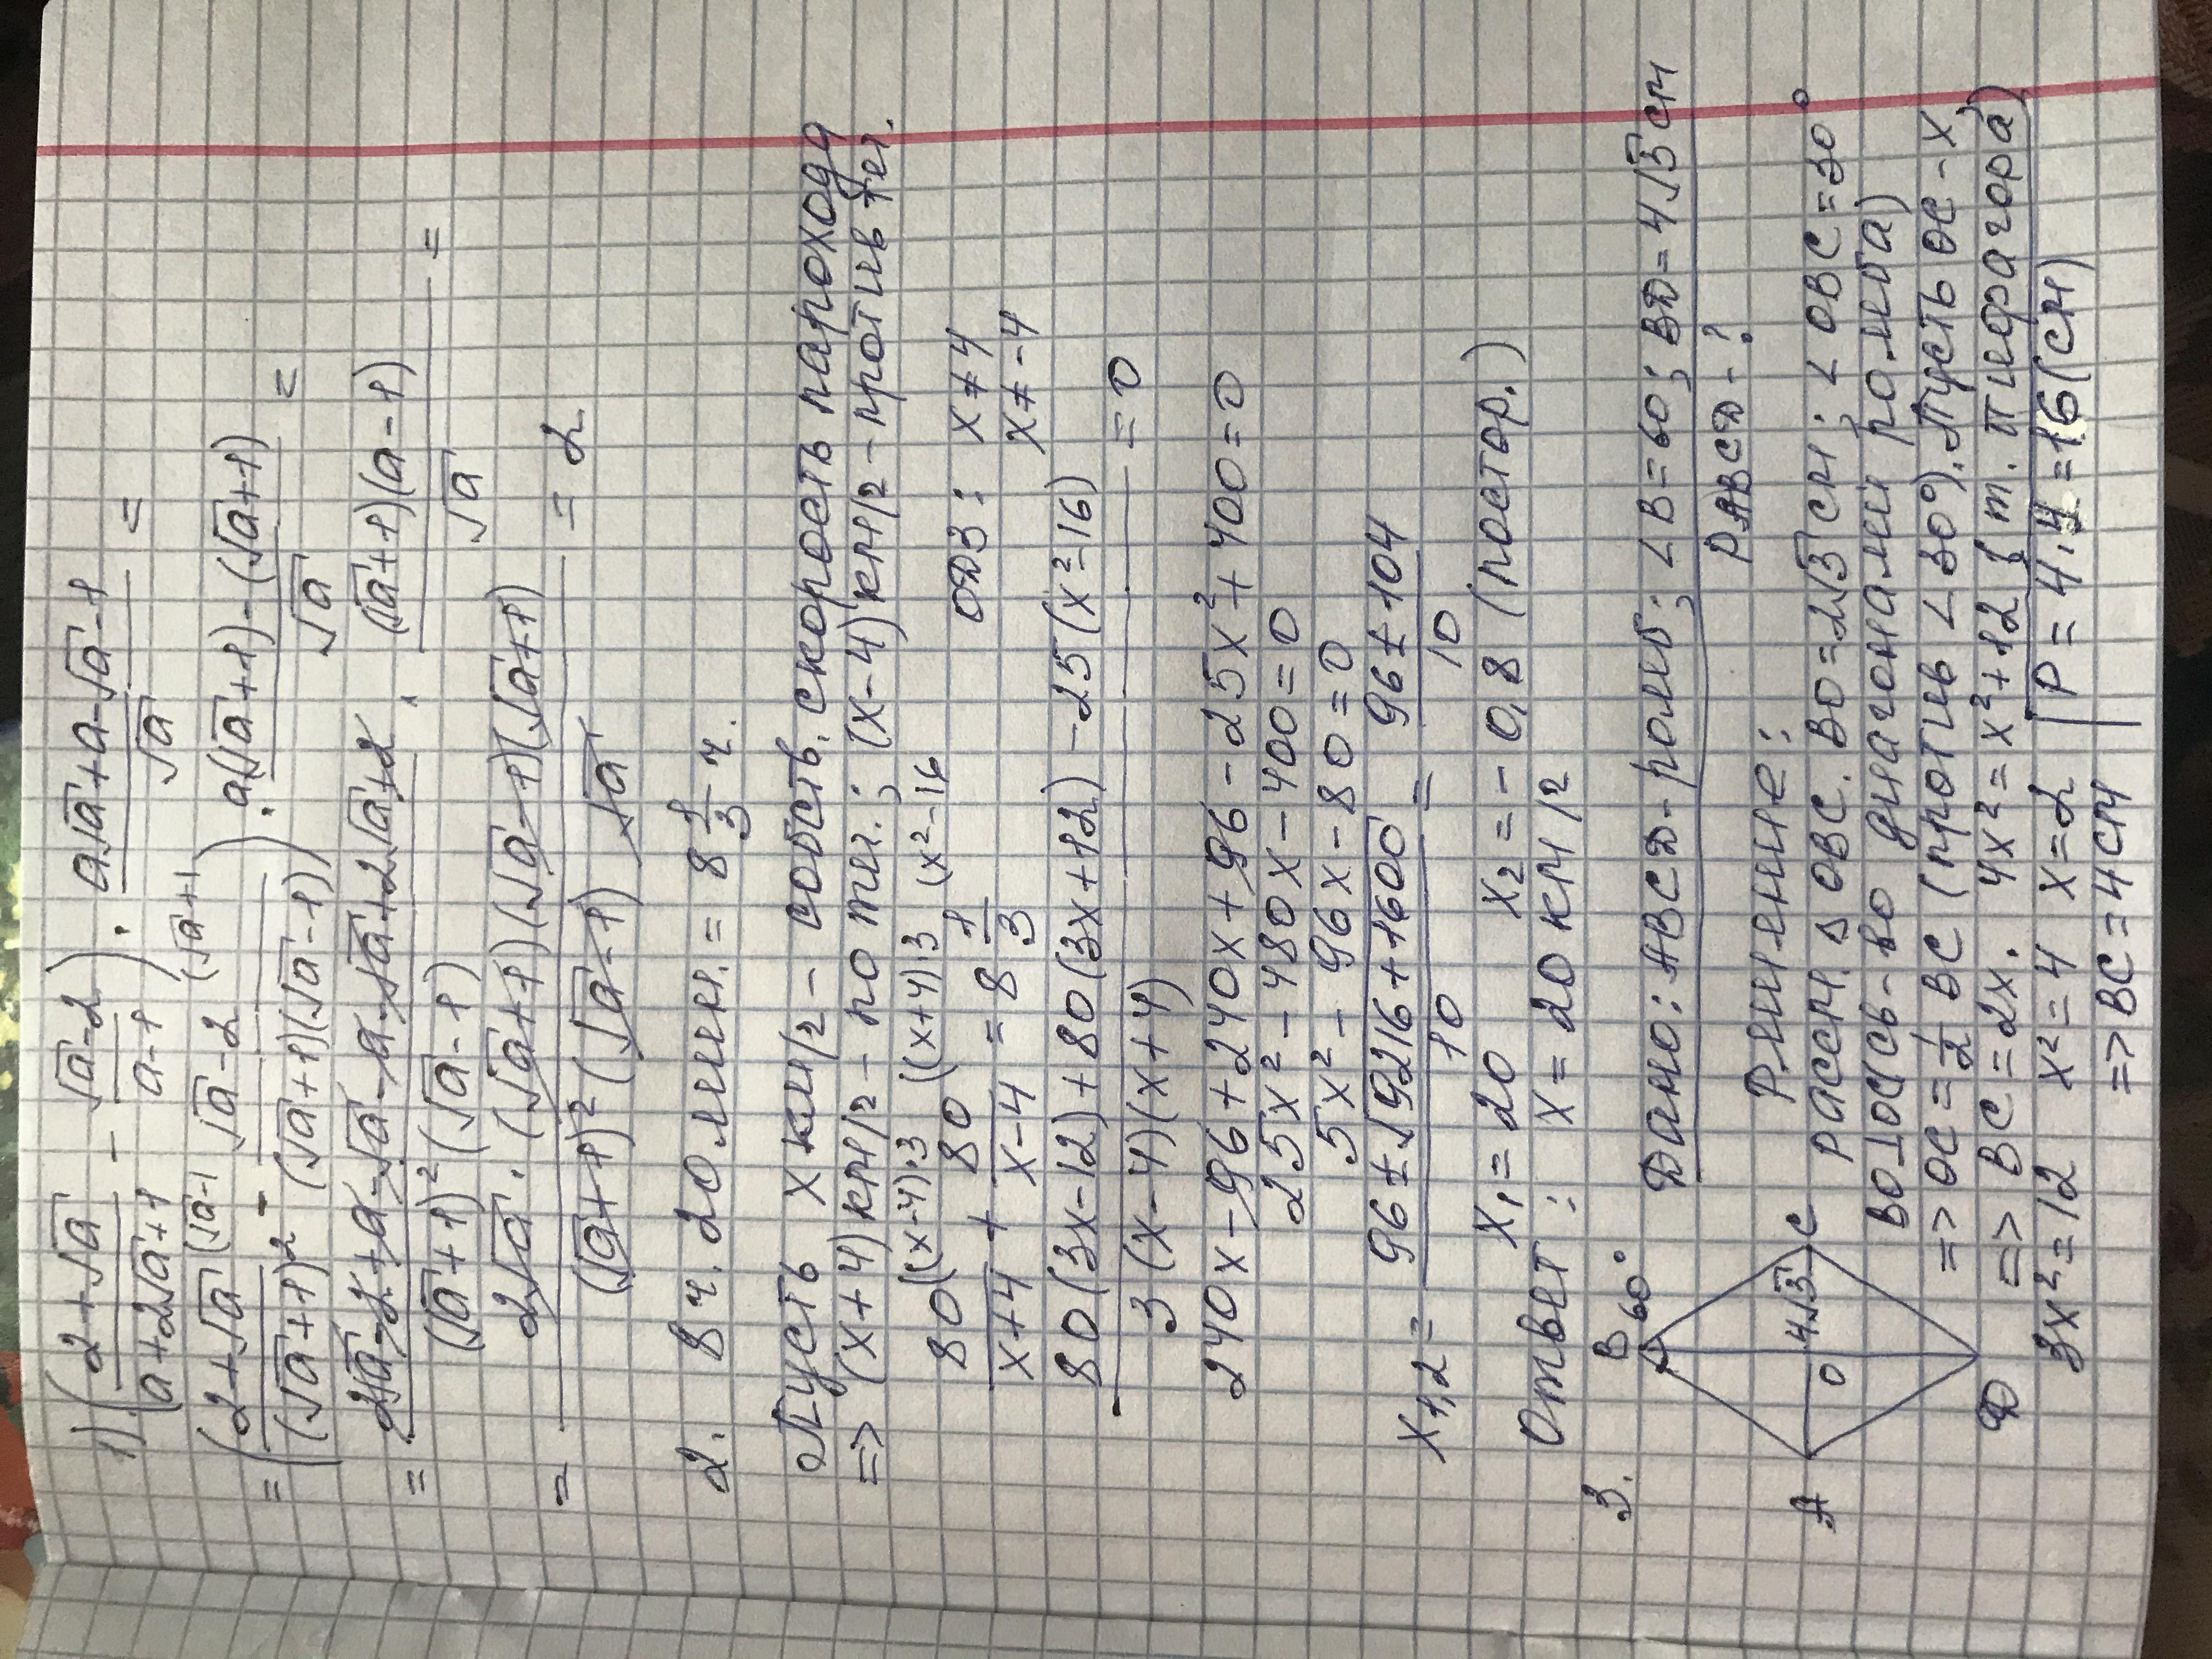 1) ((2+√a)/(a+2√a+1) - (√a-2)/(a-1)) · (a√a+a-√a-1)/√a =
= ((2+√a)(√a-1)/(√a+1)² - (√a-2)(√a+1)/((√a+1)(√a-1))) · (a(√a+1)-(√a+1))/√a =
= (2√a-2+a-√a-a-√a+2√a+2)/((√a+1)²(√a-1)) · ((√a+1)(a-1))/√a =
= (2√a·(√a+1)(√a-1)(√a+1))/((√a+1)²(√a-1)√a) = 2
2. 8 ч. 20 мин. = 8 1/3 ч.
Пусть x км/г - собств. скорость парохода
=> (x+4) км/г - по теч.; (x-4) км/г - против теч.
80((x-4)·3 80((x+4)·3 (x²-16
80/(x+4) + 80/(x-4) = 8 1/3 ОДЗ: x≠4
x≠-4
(80(3x-12)+80(3x+12)-25(x²-16))/(3(x-4)(x+4)) = 0
240x-96+240x+96-25x²+400=0
25x²-480x-400=0
5x²-96x-80=0
x1,2 = (96±√(9216+1600))/10 = (96±104)/10
x₁=20 x₂=-0,8 (постор.)
Ответ: x=20 км/г
3. Дано: ABCД-ромб; ∠B=60; BД=4√3 см
PABCД-?
B 60°
A O 4√3 C
Д
Решение:
Рассм. Δ OBC. BO=2√3 см; ∠OBC=30°
BO⊥OC(св-во диагоналей ромба)
=> OC=1/2 BC (против ∠30°). Пусть OC-x
=> BC=2x. 4x²=x²+12 (т. Пифагора)
3x²=12 x²=4 x=2 P=4·4=16(см)
=> BC=4см